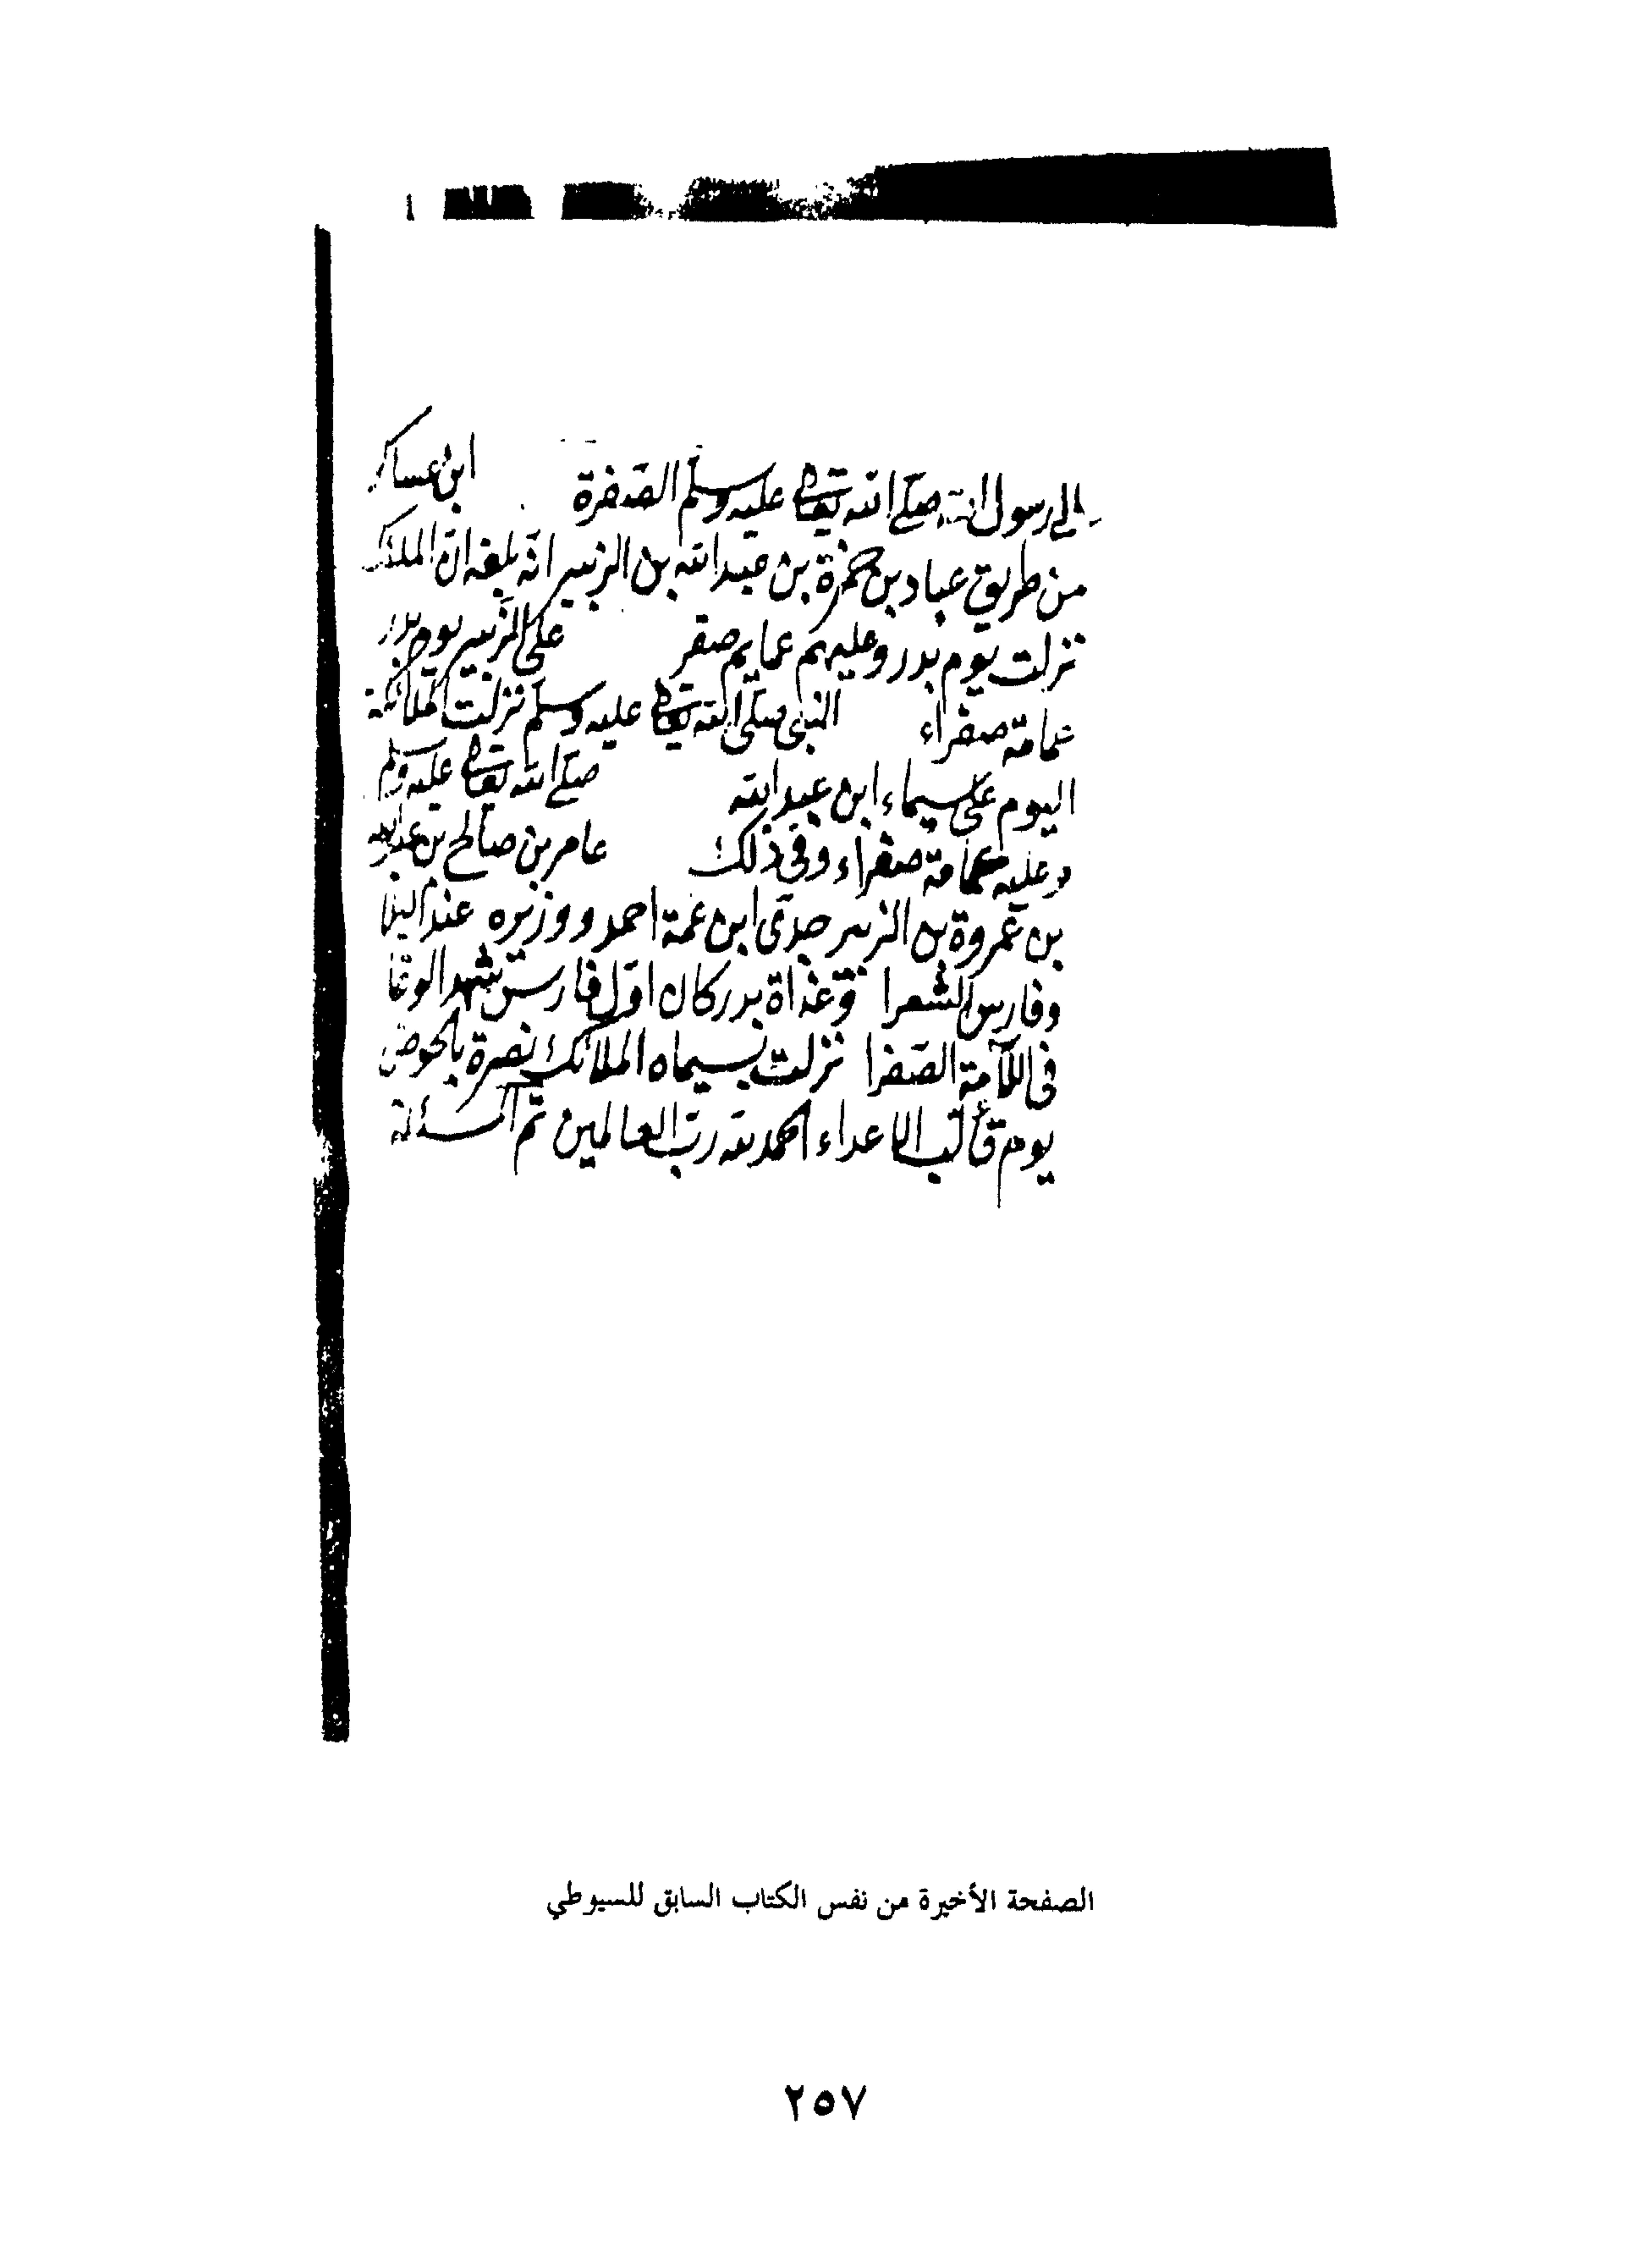 الى رسول الله صلى الله تعالى عليه وسلم الصفرة ابن عساكر
من طريق عباد بن حمزة بن عبد الله بن الزبير انه بلغه ان الملئكة
نزلت يوم بدر وعليهم عمايم صفر على الزبير يوم بدر
عمامة صفراء النبى صلى الله تعالى عليه وسلم نزلت الملائكة
اليوم على سيماء ابن عبد الله صلى الله تعالى عليه وسلم
وعليه عمامة صفراء وفى ذلك عامر بن صالح بن عبد الله
بن عروة بن الزبير جدى ابن عمة احمد ووزيره عند البلا
وفارس الشعرا وغداة بدر كان اول فارس شهد الوغا
فى اللآمة الصفرا نزلت بسيماه الملائك نصرة بالحوض
يوم تألب الاعداء الحمد لله رب العالمين تم المسئلة
الصفحة الأخيرة من نفس الكتاب السابق للسيوطي
٢٥٧